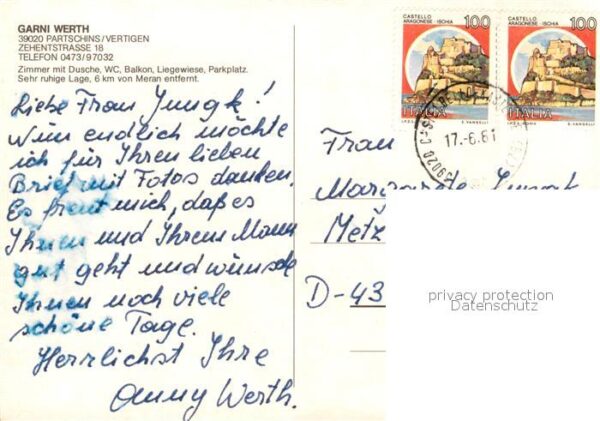 GARNI WERTH
39020 PARTSCHINS/VERTIGEN
ZEHENTSTRASSE 18
TELEFON 0473/97032
Zimmer mit Dusche, WC, Balkon, Liegewiese, Parkplatz.
Sehr ruhige Lage, 6 km von Meran entfernt.
Liebe Frau Jungk!
Nun endlich möchte
ich für Ihren lieben
Brief mit Fotos danken.
Es freut mich, daß es
Ihnen und Ihrem Mann
gut geht und wünsche
Ihnen noch viele
schöne Tage.
Herrlichst Ihre
Anny Werth.
CASTELLO
ARAGONESE ISCHIA
100
ITALIA
I.P.Z.S. ROMA E. VANGELLI
CASTELLO
ARAGONESE ISCHIA
100
ITALIA
I.P.Z.S. ROMA E. VANGELLI
39020
17.-6.81
Frau
Margarete Jungk
Metz
D-43
privacy protection
Datenschutz